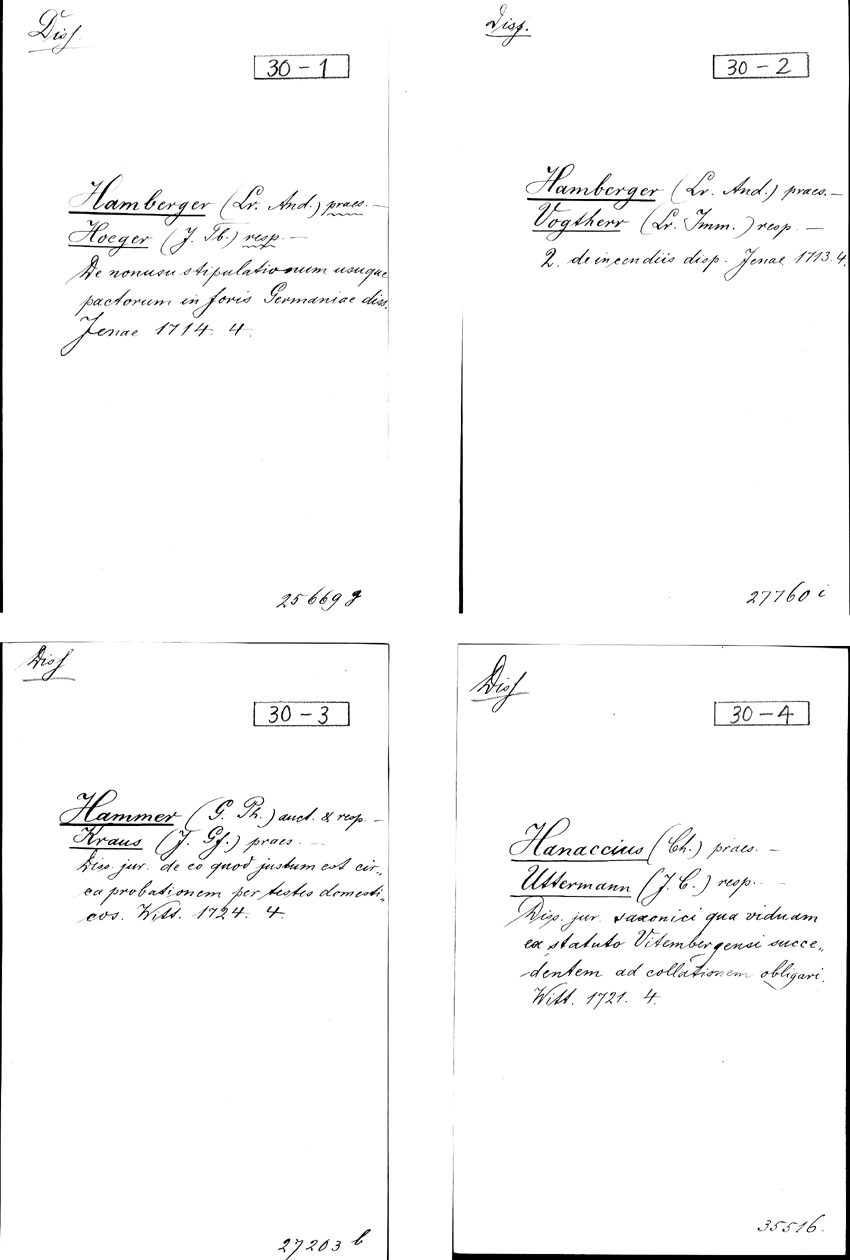 Diss.
30-1
Hamberger (Lr. And.) praes. —
Hoeger (J. Tb.) resp. —
De nonusu stipulationum usuque
pactorum in foris Germaniae diss.
Jenae 1714. 4.
25669 g
Disp.
30-2
Hamberger (Lr. And.) praes. —
Vogtherr (Lr. Imm.) resp. —
2. de incendiis disp. Jenae 1713. 4.
27760 i
Diss
30-3
Hammer (G. Ph.) auct. & resp. —
Kraus (J. Gf.) praes. —
Diss. jur. de eo quod justum est cir„
ca probationem per testes domesti„
cos. Witt. 1724. 4.
27203 b
Diss
30-4
Hanaccius (Ch.) praes. —
Uttermann (J. C.) resp. —
Disp. jur. saxonici qua viduam
ex statuto Vitembergensi succe„
dentem ad collationem obligari.
Witt. 1721. 4.
35516.